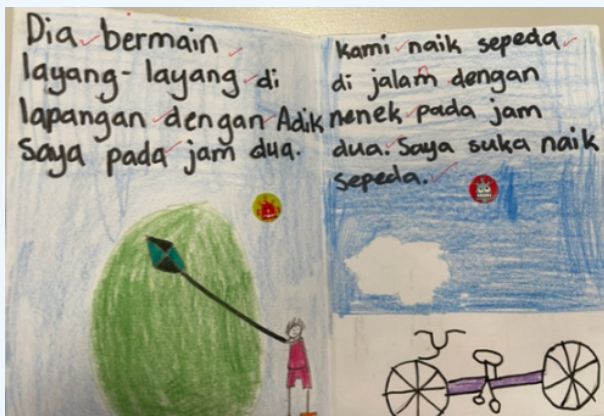 Dia bermain
layang-layang di
lapangan dengan Adik
saya pada jam dua.
Kami naik sepeda
di jalam dengan
nenek pada jam
dua. Saya suka naik
sepeda.